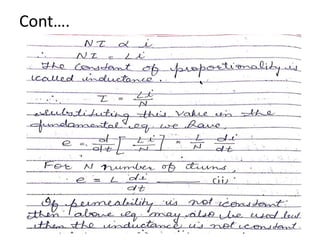 Cont....
NI α i
∴ NI = Li
The constant of proportionality is
called inductance.
∴ I = Li/N
substituting this value in the
fundamental eq we have
e = d/dt [Li/N] = L/N di/dt
For N number of turns,
e = L di/dt (ii)
If permeability is not constant
then above eq. may also be used but
then the inductance is not constant